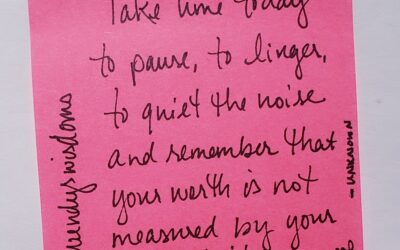 Take time today
to pause, to linger,
to quiet the noise
and remember that
your worth is not
measured by your
- UNKNOWN
wendyswisdoms